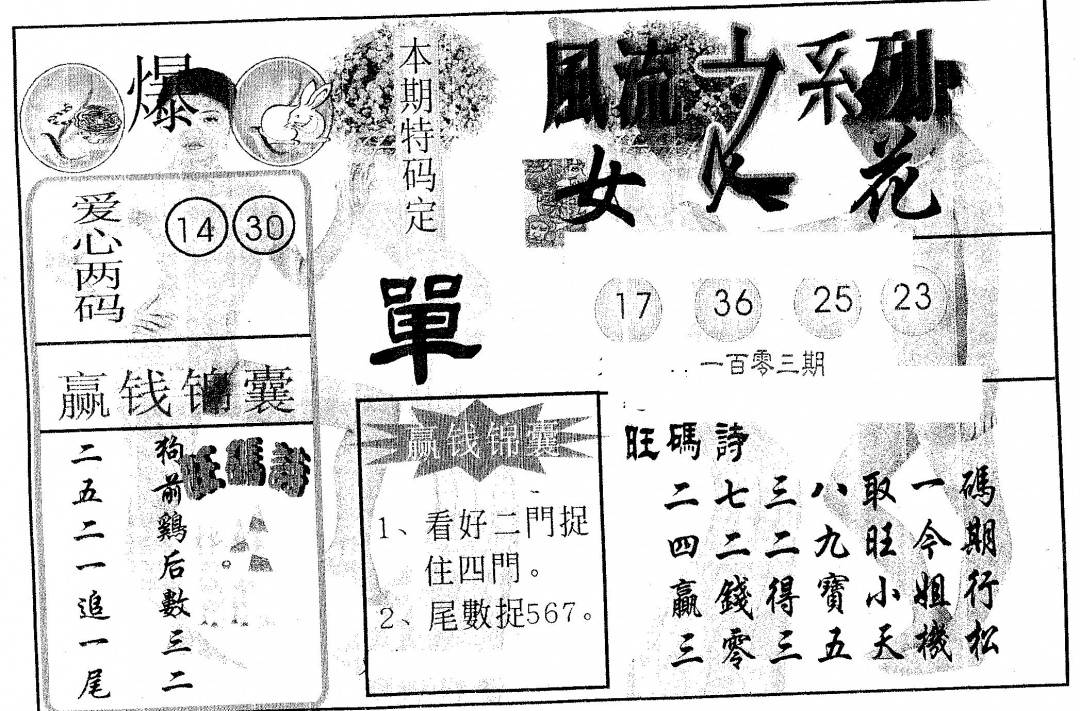 爆
本期特码定
單
風流系列
女花
爱心两码
14 30
赢钱锦囊
狗前鷄后數三二
二五二一追一尾
旺碼詩
17 36 25 23
一百零三期
赢钱锦囊
1、看好二門捉
住四門。
2、尾數捉567。
旺碼詩
二七三八取一碼
四二二九旺今期
贏錢得寶小姐行
三零三五天機松